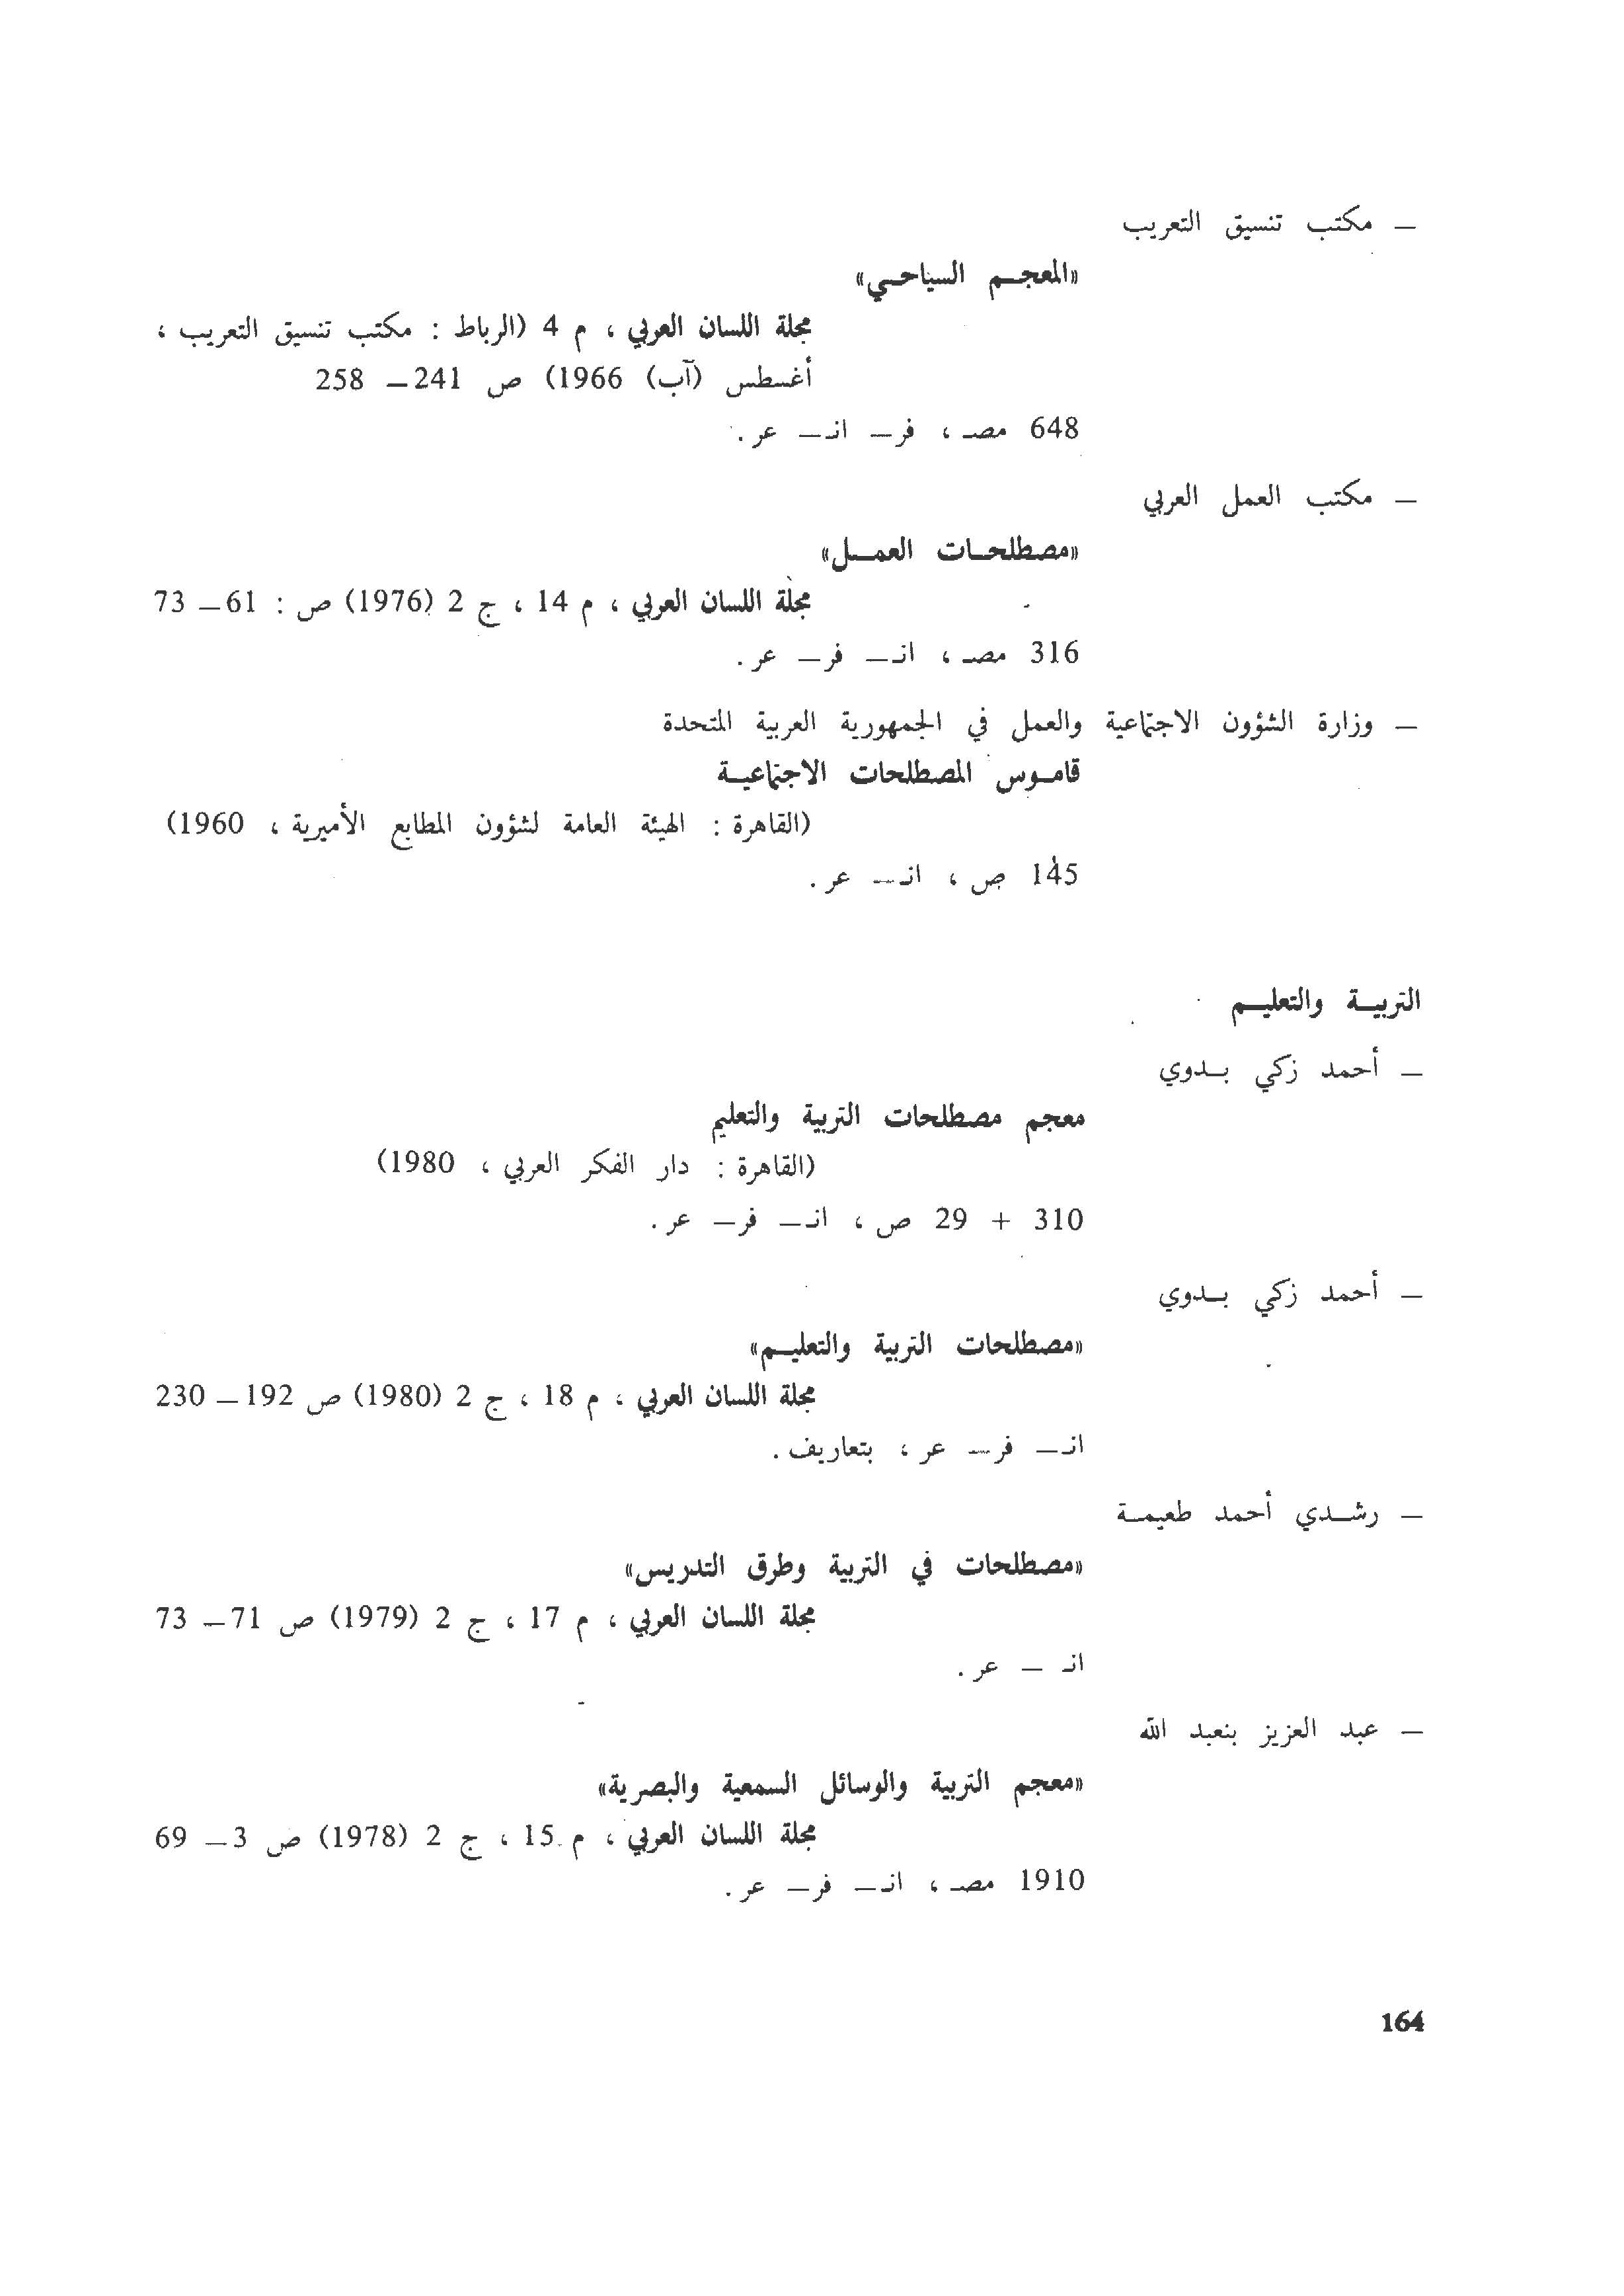 ـ مكتب تنسيق التعريب
«المعجـم السياحـي»
مجلة اللسان العربي ، م 4 (الرباط : مكتب تنسيق التعريب ،
أغسطس (آب) 1966) ص 241 ـ 258
648 مصـ ، فر ـ انـ ـ عر .
ـ مكتب العمل العربي
«مصطلحـات العمـل»
مجلة اللسان العربي ، م 14 ، ج 2 (1976) ص : 61 ـ 73
316 مصـ ، انـ ـ فر ـ عر .
ـ وزارة الشؤون الاجتماعية والعمل في الجمهورية العربية المتحدة
قامـوس المصطلحات الاجتماعيـة
(القاهرة : الهيئة العامة لشؤون المطابع الأميرية ، 1960)
145 ص ، انـ ـ عر .
التربيـة والتعليـم
ـ أحمد زكي بـدوي
معجم مصطلحات التربية والتعليم
(القاهرة : دار الفكر العربي ، 1980)
310 + 29 ص ، انـ ـ فر ـ عر .
ـ أحمد زكي بـدوي
«مصطلحات التربية والتعليـم»
مجلة اللسان العربي ، م 18 ، ج 2 (1980) ص 192 ـ 230
انـ ـ فر ـ عر ، بتعاريف .
ـ رشـدي أحمد طعيمـة
«مصطلحات في التربية وطرق التدريس»
مجلة اللسان العربي ، م 17 ، ج 2 (1979) ص 71 ـ 73
انـ ـ عر .
ـ عبد العزيز بنعبد الله
«معجم التربية والوسائل السمعية والبصرية»
مجلة اللسان العربي ، م 15 ، ج 2 (1978) ص 3 ـ 69
1910 مصـ ، انـ ـ فر ـ عر .
164